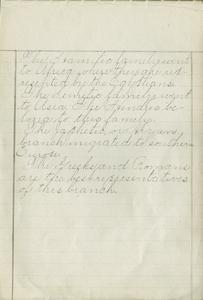 The Hamitic family went
to Africa where they are rep-
resented by the Egyptians.
The Semitic family went
to Asia. The Hindus be-
long to this family.
The Japhetic, or Aryan,
branch migrated to southern
Europe.
The Greeks and Romans
are the best representatives
of this branch.